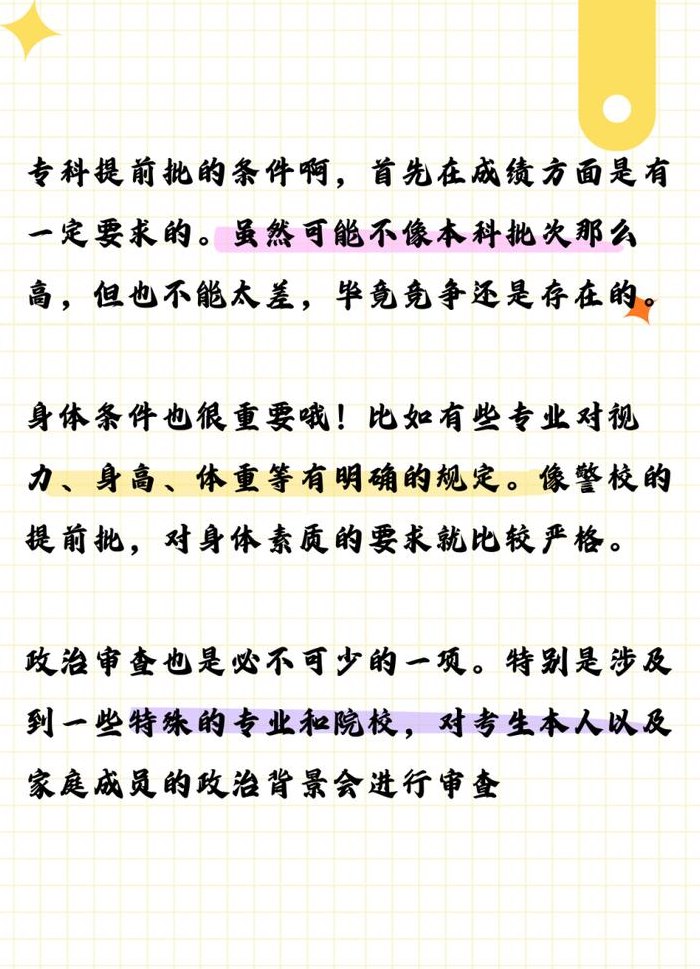 专科提前批的条件啊，首先在成绩方面是有
一定要求的。虽然可能不像本科批次那么
高，但也不能太差，毕竟竞争还是存在的。
身体条件也很重要哦！比如有些专业对视
力、身高、体重等有明确的规定。像警校的
提前批，对身体素质的要求就比较严格。
政治审查也是必不可少的一项。特别是涉及
到一些特殊的专业和院校，对考生本人以及
家庭成员的政治背景会进行审查